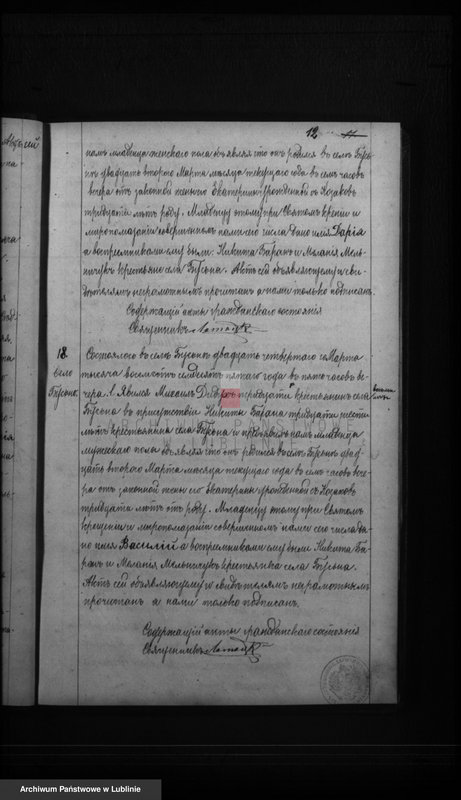 12
намъ младенца женскаго пола объявляя что онъ родился въ селѣ Гусы-
нѣ двадцать второго Марта мѣсяца текущаго года въ семь часовъ
вечера отъ законной жены его Екатерины урожденной съ Козаковъ
тридцати лѣтъ роду. Младенцу этому при Святомъ крещеніи и
миропомазаніи совершенномъ нами сего числа дано имя Дарія
а воспріемниками ему были Никита Баранъ и Меланія Мель-
ничукъ крестьяне села Гусына. Актъ сей объявляющему и сви-
дѣтелямъ неграмотнымъ прочитанъ а нами только подписанъ.
Содержащій акты гражданскаго состоянія
Священникъ
18.
Село
Гусыне.
Состоялось въ селѣ Гусынѣ двадцать четвертаго Марта
тысяча восемьсотъ семьдесятъ пятаго года въ пять часовъ ве-
чера. Явился Михаилъ тридцати крестьянинъ села
Гусына въ присутствіи Никиты Барана тридцати шести
лѣтъ крестьянина села Гусына и предъявилъ намъ младенца
мужескаго пола объявляя что онъ родился въ селѣ Гусынѣ двад-
цать второго Марта мѣсяца текущаго года въ семь часовъ вече-
ра отъ законной жены его Екатерины урожденной съ Козаковъ
тридцати лѣтъ отъ роду. Младенцу этому при Святомъ
крещеніи и миропомазаніи совершенномъ нами сего числа да-
но имя Василій а воспріемниками ему были Никита Ба-
ранъ и Меланія Мельничукъ крестьянка села Гусына.
Актъ сей объявляющему и свидѣтелямъ неграмотнымъ
прочитанъ а нами только подписанъ.
Содержащій акты гражданскаго состоянія
Священникъ
Archiwum Państwowe w Lublinie